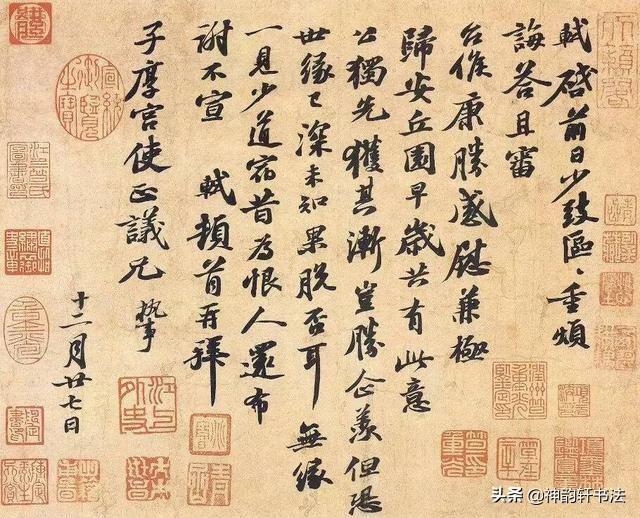 軾啓前日少致區〻重煩
誨答且審
台候康勝感慰兼極
歸安丘園早歲共有此意
公獨先獲其漸豈勝企羨但恐
世緣已深未知果脫否耳 無緣
一見少道宿昔為恨人還布
謝不宣 軾頓首再拜
子厚宮使正議兄 執事
十二月廿七日
宣統御覽之寶
江上外史
头条 @神韵轩书法